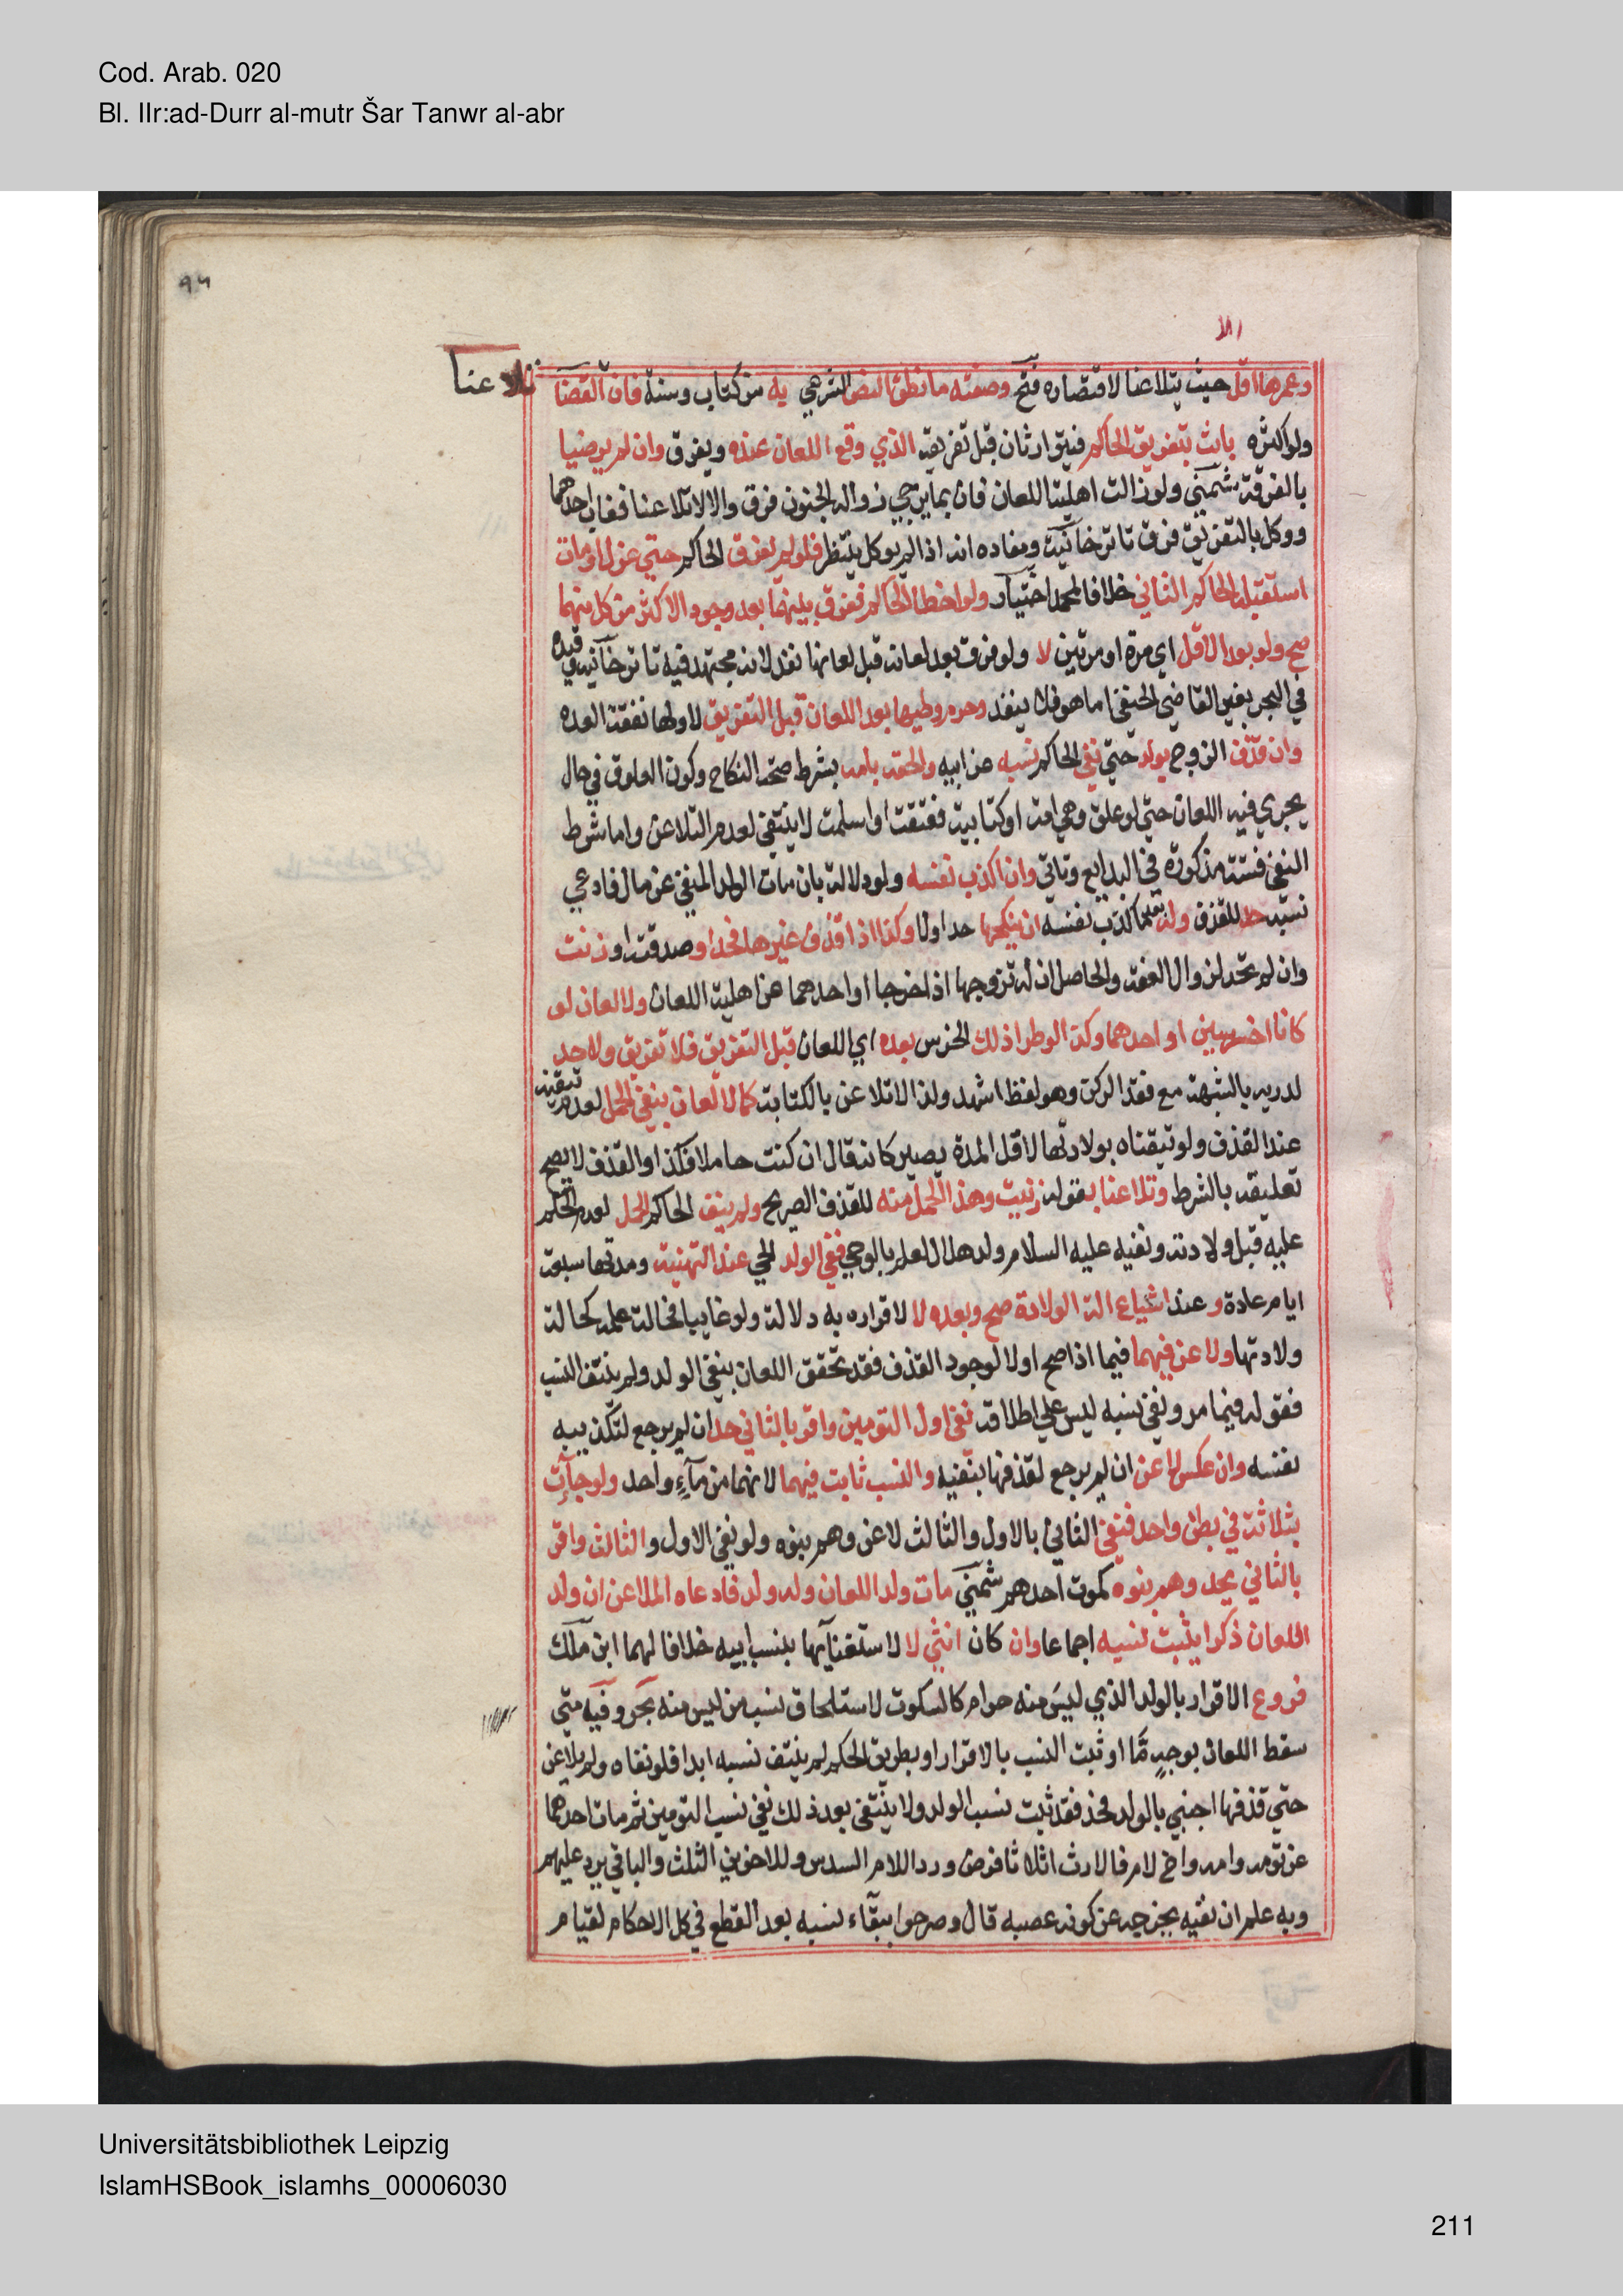 Cod. Arab. 020
Bl. IIr:ad-Durr al-mutr Šar Tanwr al-abr
٩٦
وعمرها اقل حيث يتلاعنا لاقتصاره فتح وصفته ما نطق النص الشرعي به من كتاب وسنة فان القضا تلاعنا
ولو اكثره بانت بتفريق الحاكم فيتوارثان قبل تفريقه الذي وقع اللعان عنده ويفرق وان لم يرضيا
بالفرقة شمني ولو زالت اهلية اللعان فان بما يرجي زواله لجنون فرق والا لا تلاعنا فغاب احدهما
ووكل بالتفريق فرق تاترخانية ومفاده انه اذا لم يوكل ينتظر فلو لم يفرق الحاكم حتي عزل او مات
استقبله الحاكم الثاني خلافا لمحمد اختيار ولو اخطا الحاكم ففرق بينهما بعد وجود الاكثر من كل منهما
صح ولو بعد الاقل اي مرة او مرتين لا ولو فرق بعد لعانه قبل لعانها نفذ لانه مجتهد فيه تاترخانيه وقيده
في البحر بغير القاضي الحنفي اما هو فلا ينفذ وحرم وطيها بعد اللعان قبل التفريق لا ولها نفقة العده
وان قذف الزوج بولد حتي نفي الحاكم نسبه عن ابيه والحقه بامه بشرط صحة النكاح وكون العلوق في حال
يجري فيه اللعان حتي لو علق وهي امة او كتابية فعتقت او اسلمت لا ينتفي لعدم التلاعن واما شرط
النفي فستة مذكورة في البدايع وتاتي وان اكذب نفسه ولو دلالة بان مات الولد المنفي عن مال فادعي
نسبه حد للقذف وله بعد ما كذب نفسه ان ينكحها حد اولا وكذا اذا قذف غيرها فحد او صدقت او زنت
وان لم تحد لزوال العفة والحاصل ان له تزوجها اذا خرجا او احدهما عن اهلية اللعان ولا لعان لو
كانا اخرسين او احدهما وكذا لو طرا ذلك الخرس بعده اي اللعان قبل التفريق فلا تفريق ولا حد
لدريه بالشبهة مع فقد الركن وهو لفظ اشهد ولذا لا تلاعن بالكتابة كما لا لعان بنفي الحمل لعدم تيقنه
عند القذف ولو تيقناه بولادتها لاقل المدة يصير كانه قال ان كنت حاملا فكذا والقذف لا يصح
تعليقه بالشرط وتلاعنا بقوله زنيت وهذا الحمل منه للقذف الصريح ولم ينف الحاكم الحمل لعدم الحكم
عليه قبل ولادته ونفيه عليه السلام ولد هلال لعلم بالوحي نفي الولد الحي عند التهنية ومدتها سبعة
ايام عادة وعند ابتياع الة الولادة صح وبعده لا لاقراره به دلالة ولو غايبا فحالة علمه كحالة
ولادتها ولاعن فيهما فيما اذا صح او لا لوجود القذف فقد تحقق اللعان بنفي الولد ولم ينتف النسب
فقوله فيما مر ونفي نسبه ليس علي اطلاقه نفي اول التومين واقر بالثاني حد ان لم يرجع لتكذيبه
نفسه وان عكس لاعن ان لم يرجع لقذفها بنفيه والنسب ثابت فيهما لانهما من مآء واحد ولو جآت
بثلاثة في بطن واحد فنفي الثاني بالاول والثالث لاعن وهم بنوه ولو نفي الاول والثالث واقر
بالثاني يحد وهم بنوه كموت احدهم شمني مات ولد اللعان وله ولد فادعاه الملاعن ان ولد
اللعان ذكرا يثبت نسبه اجماعا وان كان انثي لا لاستغنايها بنسب ابيه خلافا لهما ابن ملك
فروع الاقرار بالولد الذي ليس منه حرام كالسكوت لاستلحاق نسب من ليس منه بحر وفيه متي
سقط اللعان بوجهٍ مّا او ثبت النسب بالاقرار او بطريق الحكم لم ينتف نسبه ابدا فلو نفاه ولم يلاعن
حتي قذفها اجنبي بالولد فحد فقد ثبت نسب الولد ولا ينتفي بعد ذلك نفي نسب التومين ثم مات احدهما
عن تومه وامه واخ لام فالارث اثلاثا فرض ورد اللام السدس وللاخوين الثلث والباقي يرد عليهم
وبه علم ان نفيه يخرجه عن كونه عصبه قال وصرحوا ببقآء نسبه بعد القطع في كل الاحكام لقيام
Universitätsbibliothek Leipzig
IslamHSBook_islamhs_00006030
211